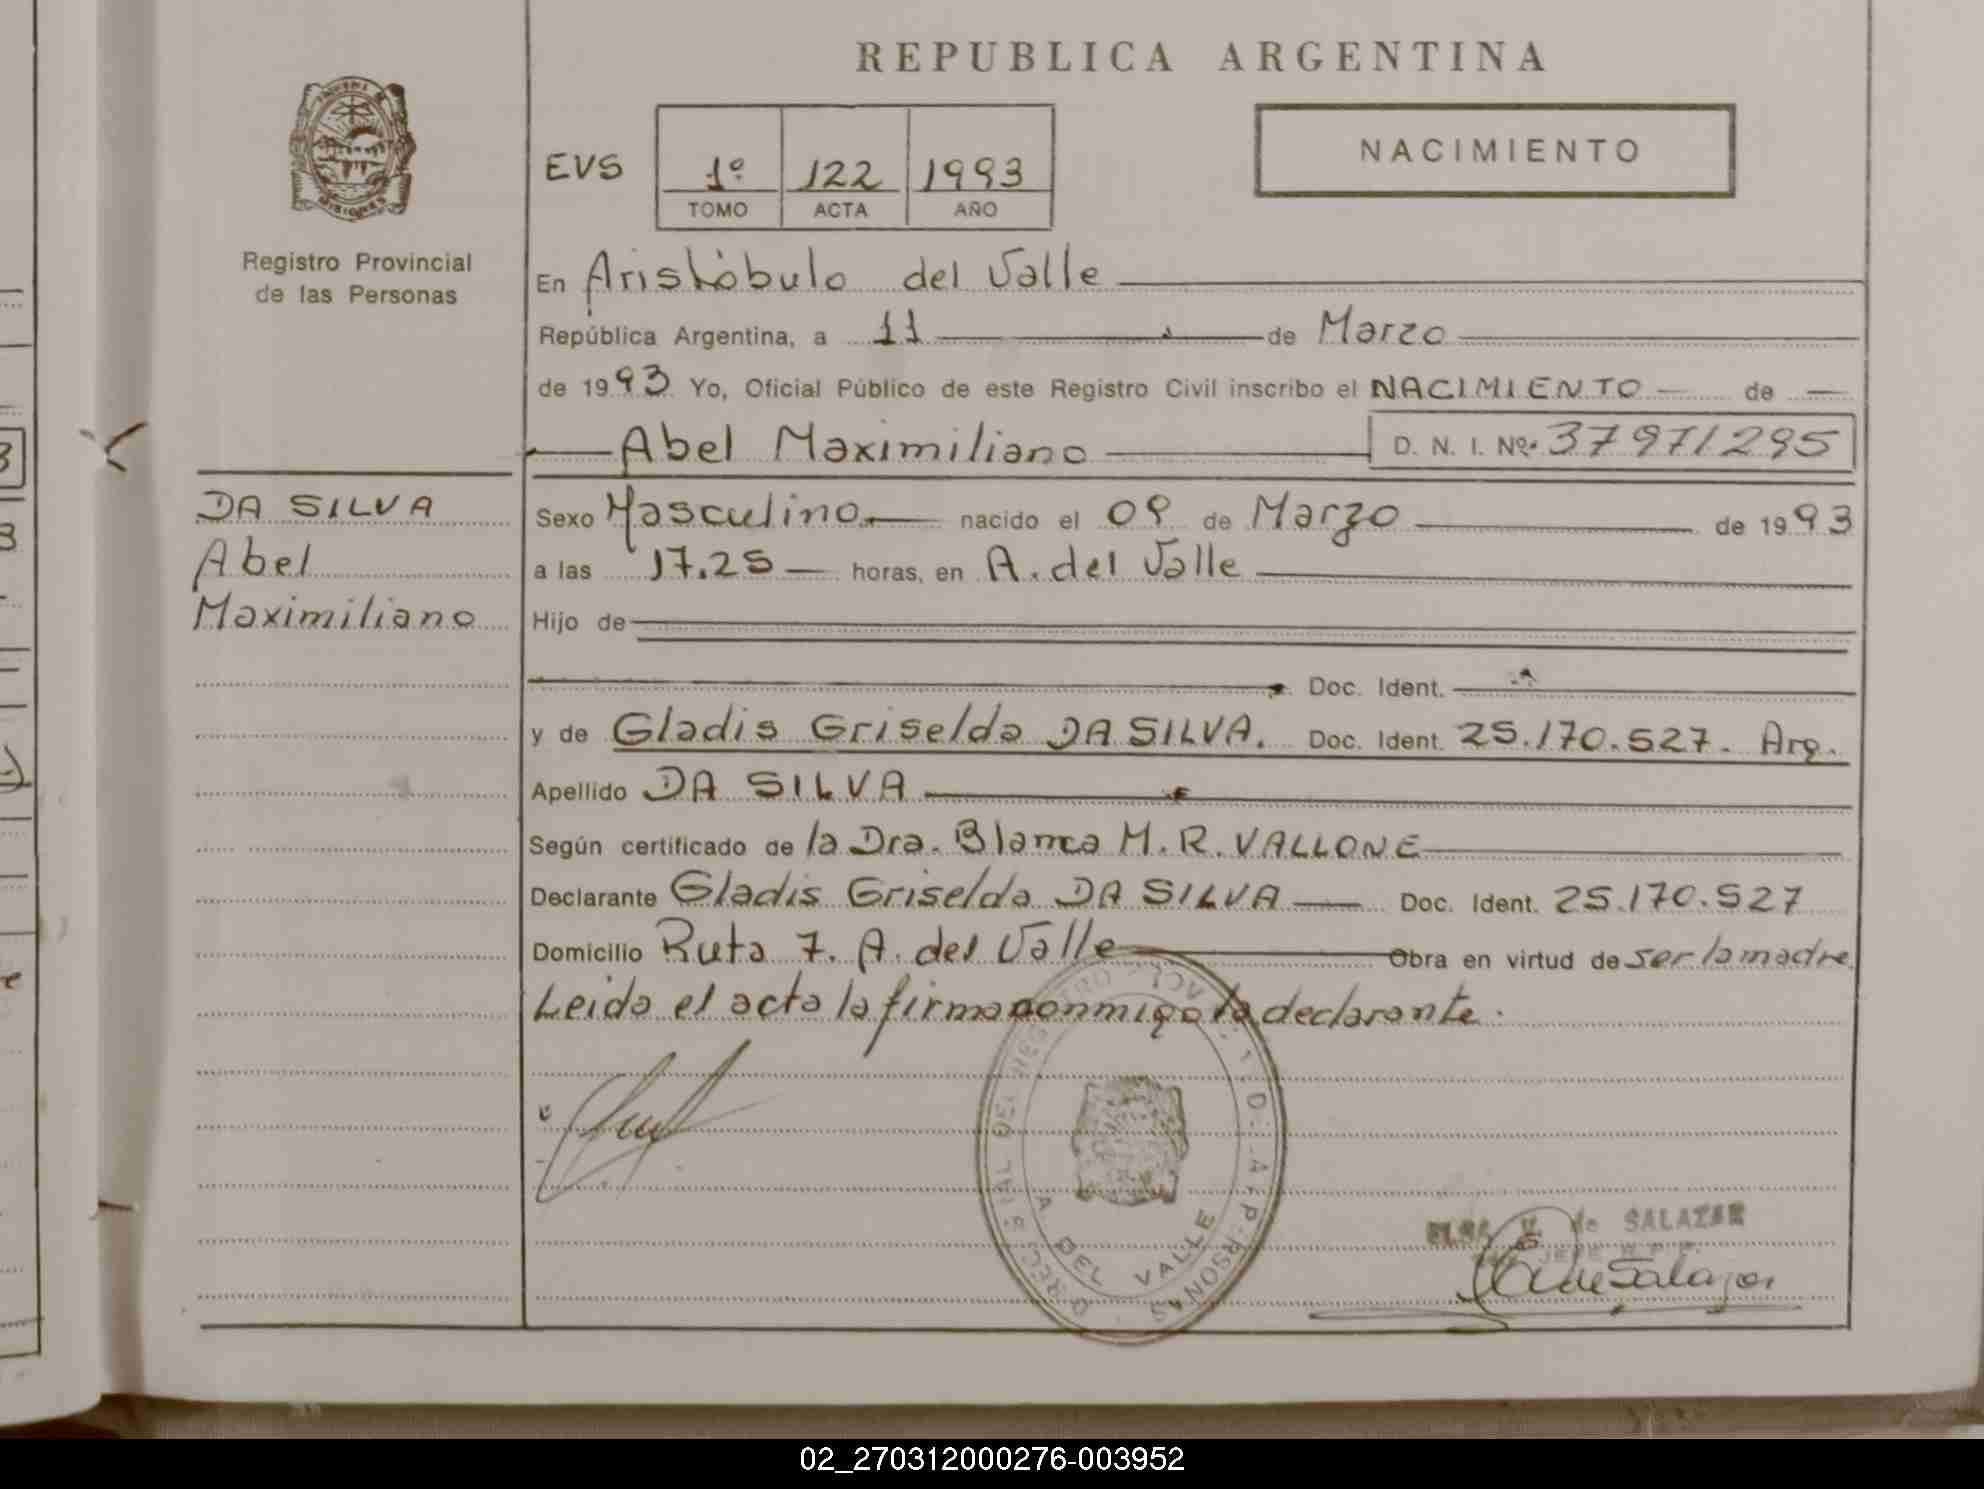 REPUBLICA ARGENTINA
NACIMIENTO
EVS
1º 122 1993
TOMO ACTA AÑO
MISIONES
Registro Provincial
de las Personas
En Aristóbulo del Valle
República Argentina, a 11 de Marzo
de 1993 Yo, Oficial Público de este Registro Civil inscribo el NACIMIENTO de
Abel Maximiliano D. N. I. Nº 37971295
DA SILVA
Abel
Maximiliano
Sexo Masculino nacido el 09 de Marzo de 1993
a las 17.25 horas, en A. del Valle
Hijo de
Doc. Ident.
y de Gladis Griselda DA SILVA. Doc. Ident. 25.170.527. Arg.
Apellido DA SILVA
Según certificado de la Dra. Blanca M. R. VALLONE
Declarante Gladis Griselda DA SILVA Doc. Ident. 25.170.527
Domicilio Ruta 7. A. del Valle Obra en virtud de ser la madre
Leida el acta la firma conmigo la declarante.
A DEL VALLE
de SALAZAR
JEFE
de Salazar
02_270312000276-003952